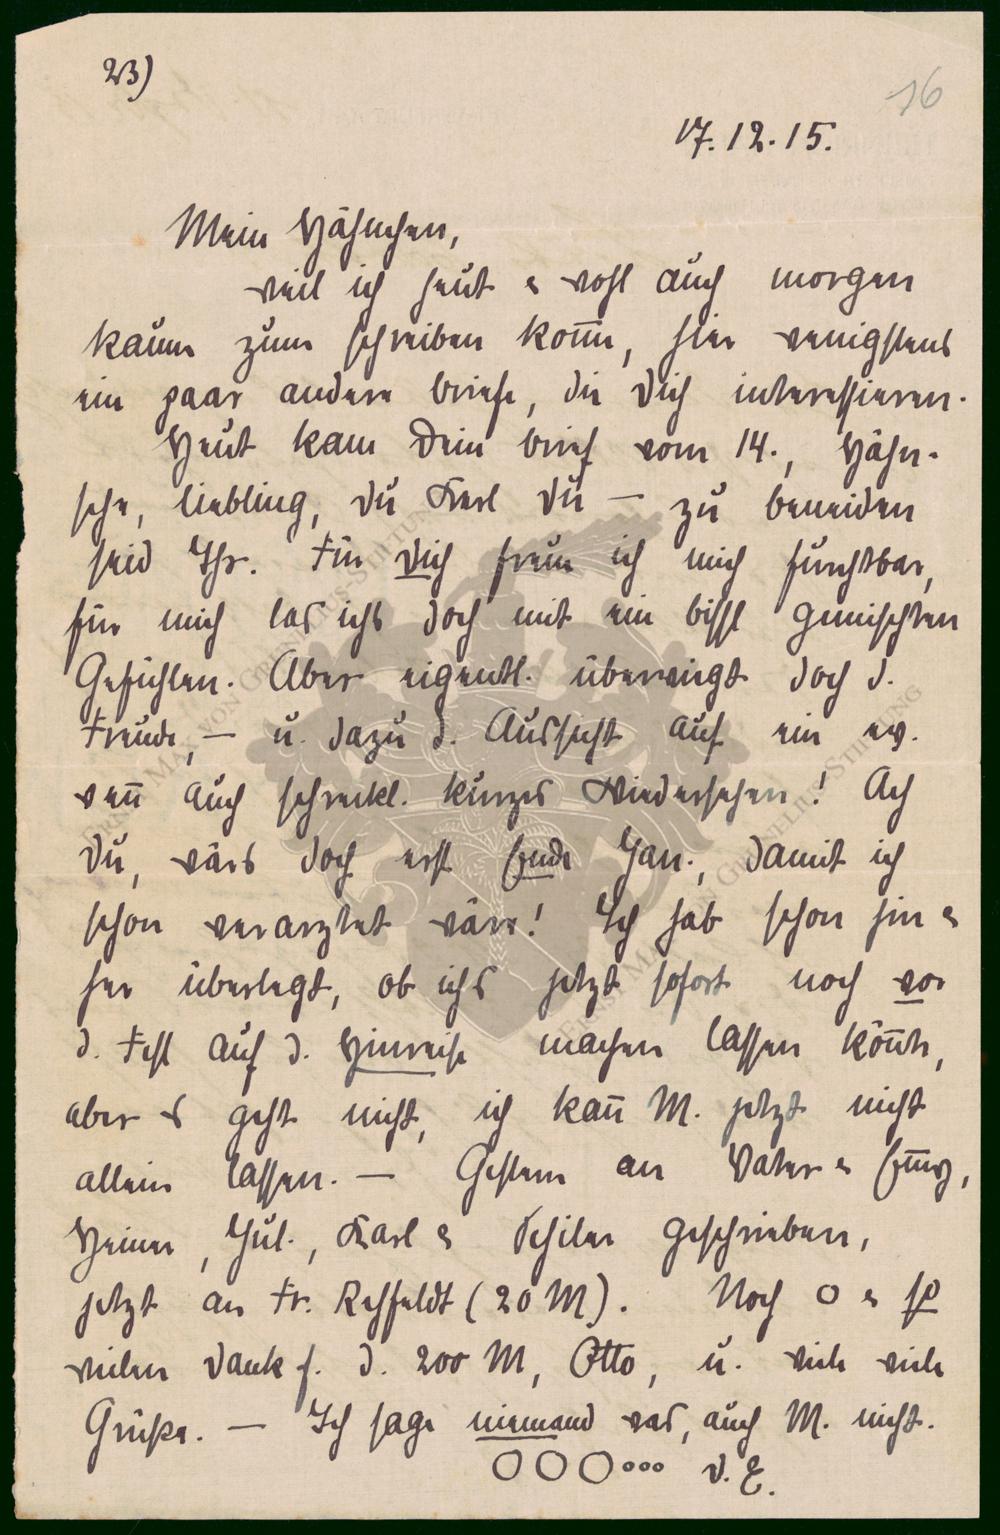 23)
16
17.12.15.
Mein Hähnchen,
weil ich heut & wohl auch morgen
kaum zum schreiben kom̅e, hier wenigstens
ein paar andere briefe, die Dich interessieren.
Heut kam Dein brief vom 14., Hähn-
sche, liebling, Du Kerl Du — zu beneiden
seid Ihr. Für Dich freue ich mich furchtbar,
für mich las ichs doch mit ein bissl gemischten
Gefühlen. Aber eigentl. überwiegt doch d.
Freude, — u. dazu d. Aussicht auf ein ev.
wen̅ auch schreckl. kurzes Wiedersehen! Ach
Du, wärs doch erst Ende Jan., damit ich
schon verarztet wäre! Ich hab schon hin &
her überlegt, ob ichs jetzt sofort noch vor
d. Fest auf d. Hinreise machen lassen kön̅te,
aber es geht nicht, ich kan̅ M. jetzt nicht
allein lassen. — Gestern an Vater &
Heiner, Jul., Karl & geschrieben,
jetzt an Fr. Rehfeldt (20 M). Noch o &
vielen Dank f. d. 200 M, Otto, u. viele viele
Grüße. — Ich sage niemand was, auch M. nicht.
OOO°°° D. E.
ERNST MAX VON GRUNELIUS-STIFTUNG
ERNST MAX VON GRUNELIUS-STIFTUNG